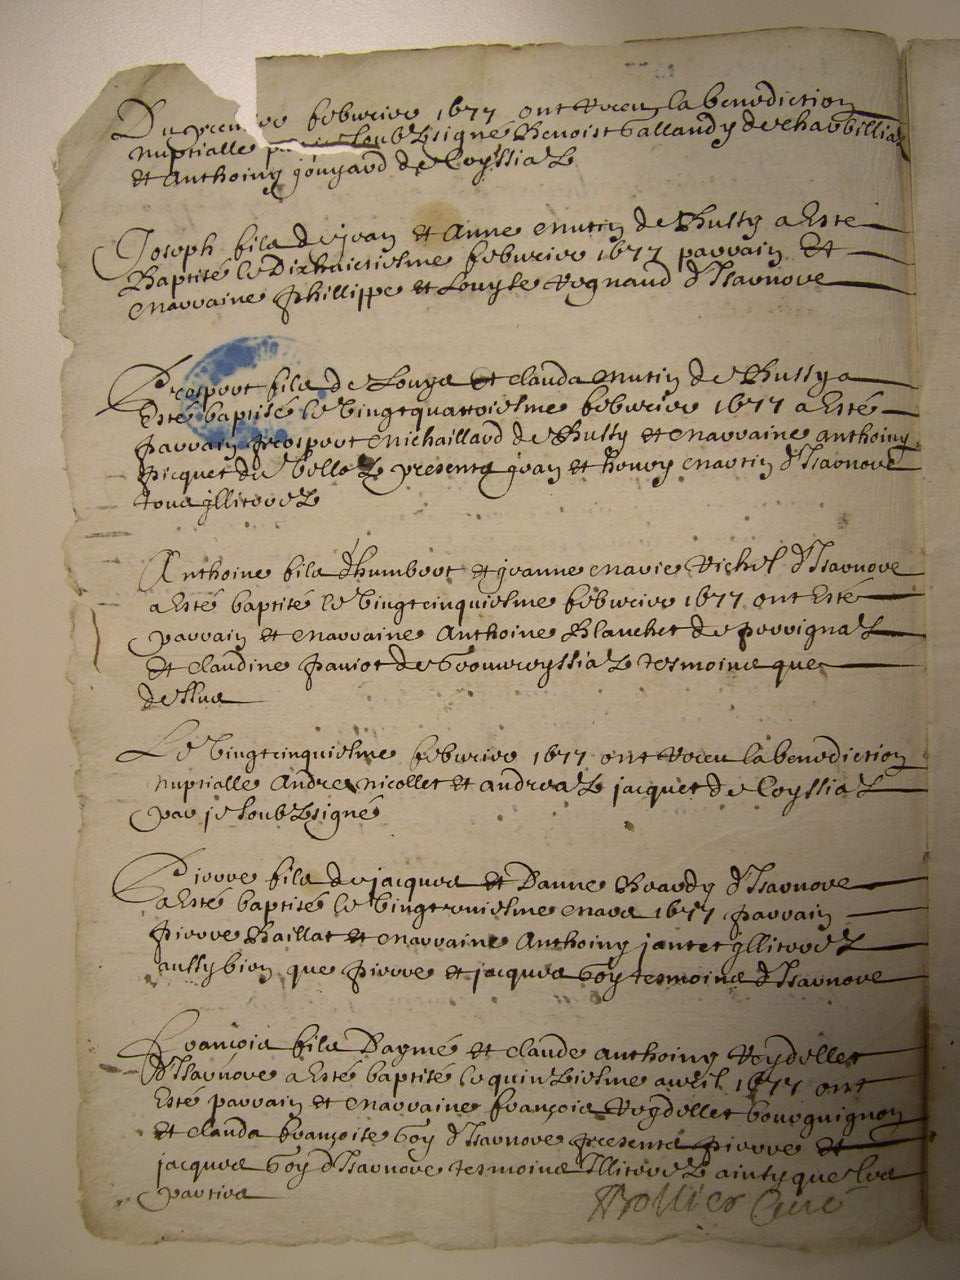 Du premier febvrier 1677 ont receu la benediction
nuptialle par je soubzsigné Benoist Gallandy de charbilliaz
et Anthoiny gouyard de Coyssiaz
Joseph filz de jean et Anne mutin de Bussy a Esté
Baptisé le Dixhuictiesme febvrier 1677 parrain Et
marraine phillippe et Louyse Regnaud d'Isarnore
Prospert filz de Louys et clauda mutin de Bussy a
Esté baptisé le vingtquattriesme febvrier 1677 a Esté
parrain prospert michaillard de Bussy et marraine anthoiny
picquet de presentz jean et henry martin d'Isarnore
tous yllitéréz
Anthoine filz d'humbert et jeanne marie Vichet d'Isarnore
a Esté baptisé le vingtcinquiesme febvrier 1677 ont Esté
parrain et marraine Anthoine Blanchet de perrignaz
et claudine paniot de tesmoins que
dessus
Le vingtcinquiesme febvrier 1677 ont receu la benediction
nuptialle Andre nicollet et andreaz jacquet de Coyssiaz
par je soubzsigné
Pierre filz de jacques et D'anne Brardy d'Isarnore
a Esté baptisé le mars 1677 parrain
pierre Baillat et marraine Anthoiny jantet yllitéréz
aussy bien que pierre et jacques Goy tesmoins d'Isarnore
François filz D'aymé et claude anthoiny Reydellet
d'Isarnore a Esté baptisé le quinziesme avril 1677 ont
Esté parrain et marraine françois Reydellet bourguignon
et clauda françoise Goy d'Isarnore presentz pierre et
jacques Goy d'Isarnore tesmoins Illitéréz ainsy que les
parties
Curé